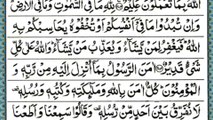 اللّٰهُ بِمَا تَعْمَلُوْنَ عَلِيْمٌ لِلّٰهِ مَا فِي السَّمٰوٰتِ وَمَا فِي الْاَرْضِ
وَاِنْ تُبْدُوْا مَا فِيْٓ اَنْفُسِكُمْ اَوْ تُخْفُوْهُ يُحَاسِبْكُمْ بِهِ
اللّٰهُ فَيَغْفِرُ لِمَنْ يَّشَآءُ وَيُعَذِّبُ مَنْ يَّشَآءُ وَاللّٰهُ عَلٰى كُلِّ
شَيْءٍ قَدِيْرٌ اٰمَنَ الرَّسُوْلُ بِمَآ اُنْزِلَ اِلَيْهِ مِنْ رَّبِّهٖ وَ
الْمُؤْمِنُوْنَ كُلٌّ اٰمَنَ بِاللّٰهِ وَمَلٰٓئِكَتِهٖ وَكُتُبِهٖ وَرُسُلِهٖ
لَا نُفَرِّقُ بَيْنَ اَحَدٍ مِّنْ رُّسُلِهٖ وَقَالُوْا سَمِعْنَا وَاَطَعْنَا